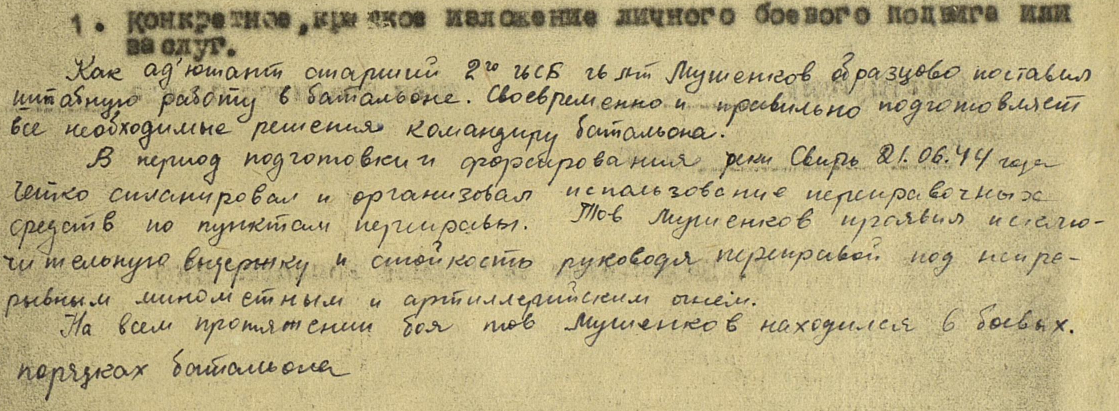 1. Конкретное, краткое изложение личного боевого подвига или
заслуг.
Как ад'ютант старший 2го Мушенков образцово поставил
штабную работу в батальоне. Своевременно и правильно подготовляет
все необходимые решения командиру батальона.
В период подготовки и форсирования реки Свирь 21.06.44 года
четко спланировал и организовал использование переправочных
средств по пунктам переправы. Тов Мушенков проявил исклю-
чительную выдержку и стойкость руководя переправой под непре-
рывным минометным и артиллерийским огнем.
На всем протяжении боя тов Мушенков находился в боевых.
порядках батальона